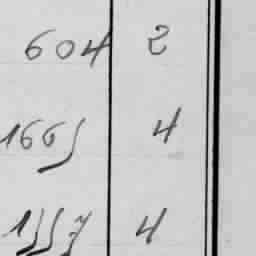 604 2
1665 4
1557 4